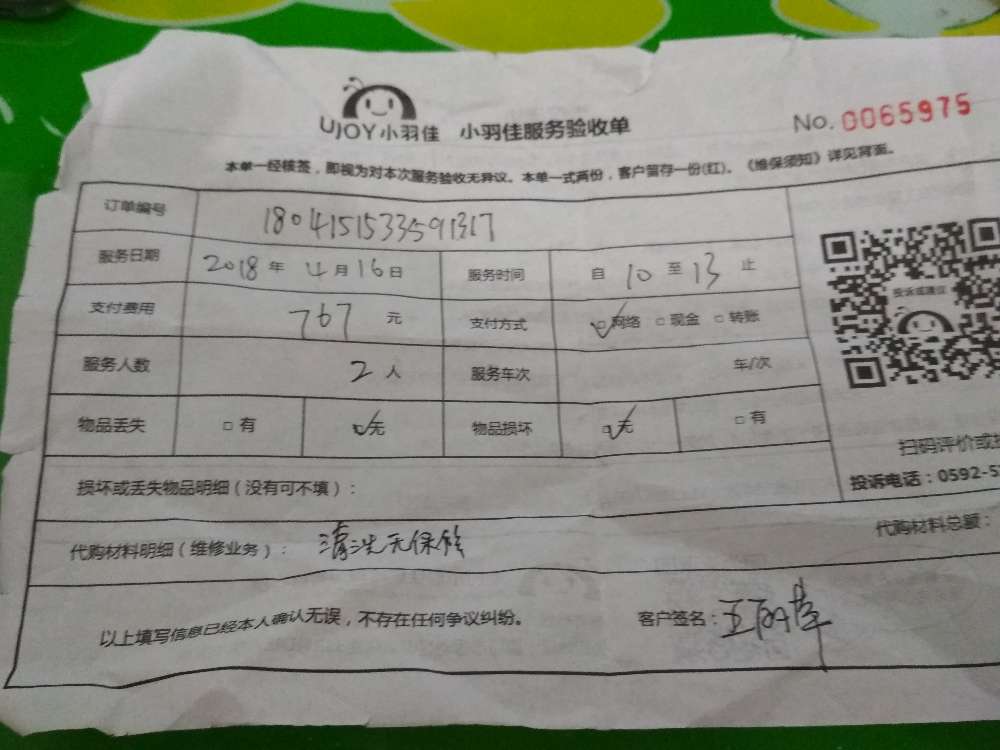 UJOY小羽佳 小羽佳服务验收单 No. 0065975
本单一经核签，即视为对本次服务验收无异议。本单一式两份，客户留存一份(红)。《维保须知》详见背面。
订单编号 1804151533591317
服务日期 2018年4月16日 服务时间 自10至13止
投诉或建议
支付费用 767元 支付方式 ☑网络 □现金 □转账
服务人数 2人 服务车次 车/次
物品丢失 □有 ☑无 物品损坏 ☑无 □有
扫码评价或
投诉电话：0592-5
损坏或丢失物品明细（没有可不填）：
代购材料总额：
代购材料明细（维修业务）： 清洗无保修
以上填写信息已经本人确认无误，不存在任何争议纠纷。 客户签名：王